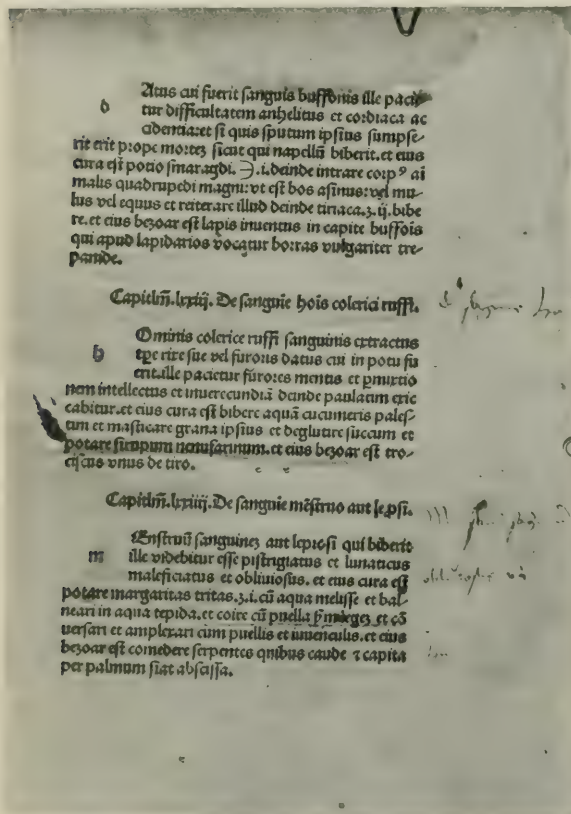 Atus cui fuerit sanguis buffonis ille pacie
d tur difficultatem anhelitus et cordiaca ac
cidentia:et si quis sputum ipsius sumpſe-
rit erit prope mortez ſicut qui napellū biberit.et eius
cura eſt potio ſmaragdi. ℈.i.deinde intrare corpꝰ ai
malis quadrupedi magni:vt eſt bos aſinus:vel mu-
lus vel equus et reiterare illud deinde tiriaca.ʒ.ij.bibe
re.et eius bezoar eſt lapis inuentus in capite buffois
qui apud lapidarios vocatur borras vulgariter cre-
panide.
Capitlm̄.lxxiij. De ſanguie hoīs colerici ruffi.
Ominis colerice ruffi ſanguinis extractus
h tꝑe rixe ſue vel furoris datus cui in potu fu
erit.ille pacietur furores mentis et ꝑmixtio
nem intellectus et inuerecundiā deinde paulatim exic
cabitur.et eius cura eſt bibere aquā cucumeris paleſ-
tini et maſticare grana ipſius et deglutire ſuccum et
potare ſirupum nenufarinum.et eius bezoar eſt tro-
ciſcus vnus de tiro.
Capitlm̄.lxxiiij.De ſanguie mēſtruo aut leꝓſi.
Enſtruū ſanguinez aut leproſi qui biberit
m ille videbitur eſſe piſtrigiatus et lunaticus
maleficiatus et obliuioſus. et eius cura eſt
potare margaritas tritas.ʒ.i.cū aqua meliſſe et bal-
neari in aqua tepida.et coire cū puella et cō
uerſari et amplexari cum puellis et iuuenculis.et eius
bezoar eſt comedere ſerpentes quibus caude ⁊ capita
per palmum ſiat abſciſſa.